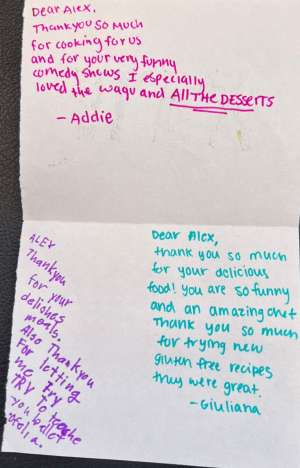 Dear Alex,
Thank you so much
for cooking for us
and for your very funny
comedy shows I especially
loved the wagu and All THE DESSERTS
- Addie
ALEX
Thankyou
for your
delishes
meals.
Also Thankyou
For letting
me Try
TRY To teache
you ballet
Dear Alex,
thank you so much
for your delicious
food! you are so funny
and an amazing chef
Thank you so much
for trying new
gluten free recipes
they were great.
- Giuliana